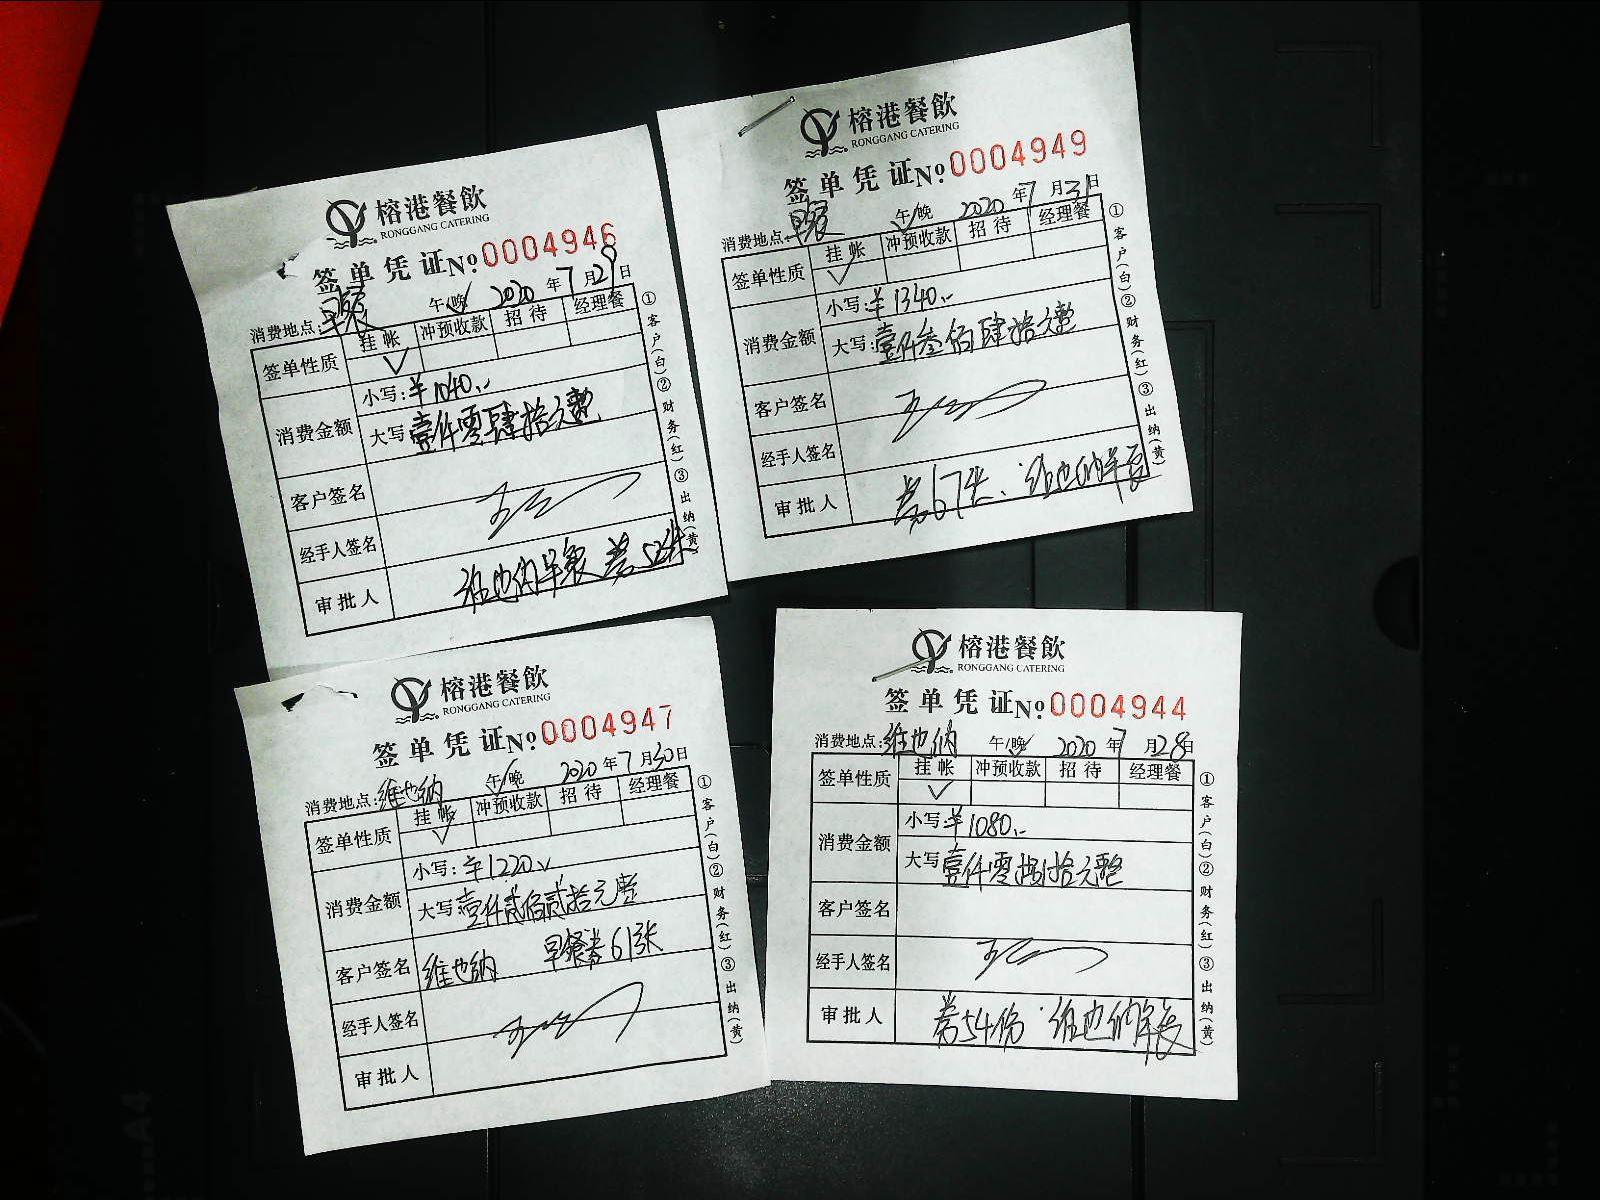 榕港餐飲
RONGGANG CATERING
签单凭证 No 0004946
消费地点: 早餐 午/晚 2020 年 7 月 29 日
签单性质 挂帐 冲预收款 招待 经理餐
√
消费金额 小写: ¥1040.-
大写 壹仟零肆拾元整
客户签名
经手人签名
审批人 维也纳早餐 券52张
①客户(白)②财务(红)③出纳(黄)
榕港餐飲
RONGGANG CATERING
签单凭证 No 0004949
消费地点: 早餐 午/晚 2020 年 7 月 31 日
签单性质 挂帐 冲预收款 招待 经理餐
√
消费金额 小写: ¥1340.-
大写: 壹仟叁佰肆拾元整
客户签名
经手人签名
审批人 券67张、维也纳早餐
①客户(白)②财务(红)③出纳(黄)
榕港餐飲
RONGGANG CATERING
签单凭证 No 0004947
消费地点: 维也纳 午/晚 2020 年 7 月 30 日
签单性质 挂帐 冲预收款 招待 经理餐
√
消费金额 小写: ¥1220.-
大写 壹仟贰佰贰拾元整
客户签名 维也纳 早餐券61张
经手人签名
审批人
①客户(白)②财务(红)③出纳(黄)
榕港餐飲
RONGGANG CATERING
签单凭证 No 0004944
消费地点: 维也纳 午/晚 2020 年 7 月 28 日
签单性质 挂帐 冲预收款 招待 经理餐
√
消费金额 小写: ¥1080.-
大写 壹仟零捌拾元整
客户签名
经手人签名
审批人 券54份·维也纳早餐
①客户(白)②财务(红)③出纳(黄)